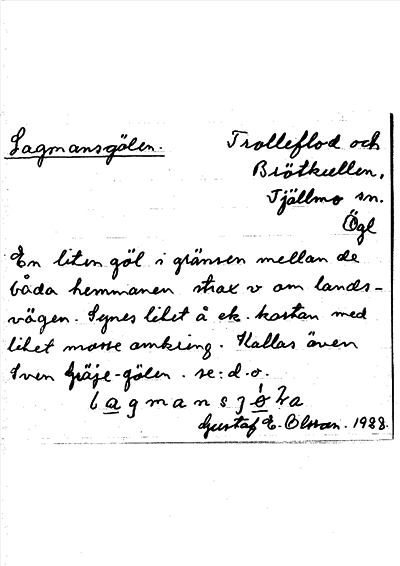 Lagmansgölen.
Trolleflod och
Brötkullen,
Tjällmo sn.
Ögl
En liten göl i gränsen mellan de
båda hemmanen strax v om lands-
vägen. Synes litet å ek. kartan med
litet mosse omkring. Kallas även
Sven Gräje-gölen. se: d.o.
Gustaf E. Olsson. 1928.